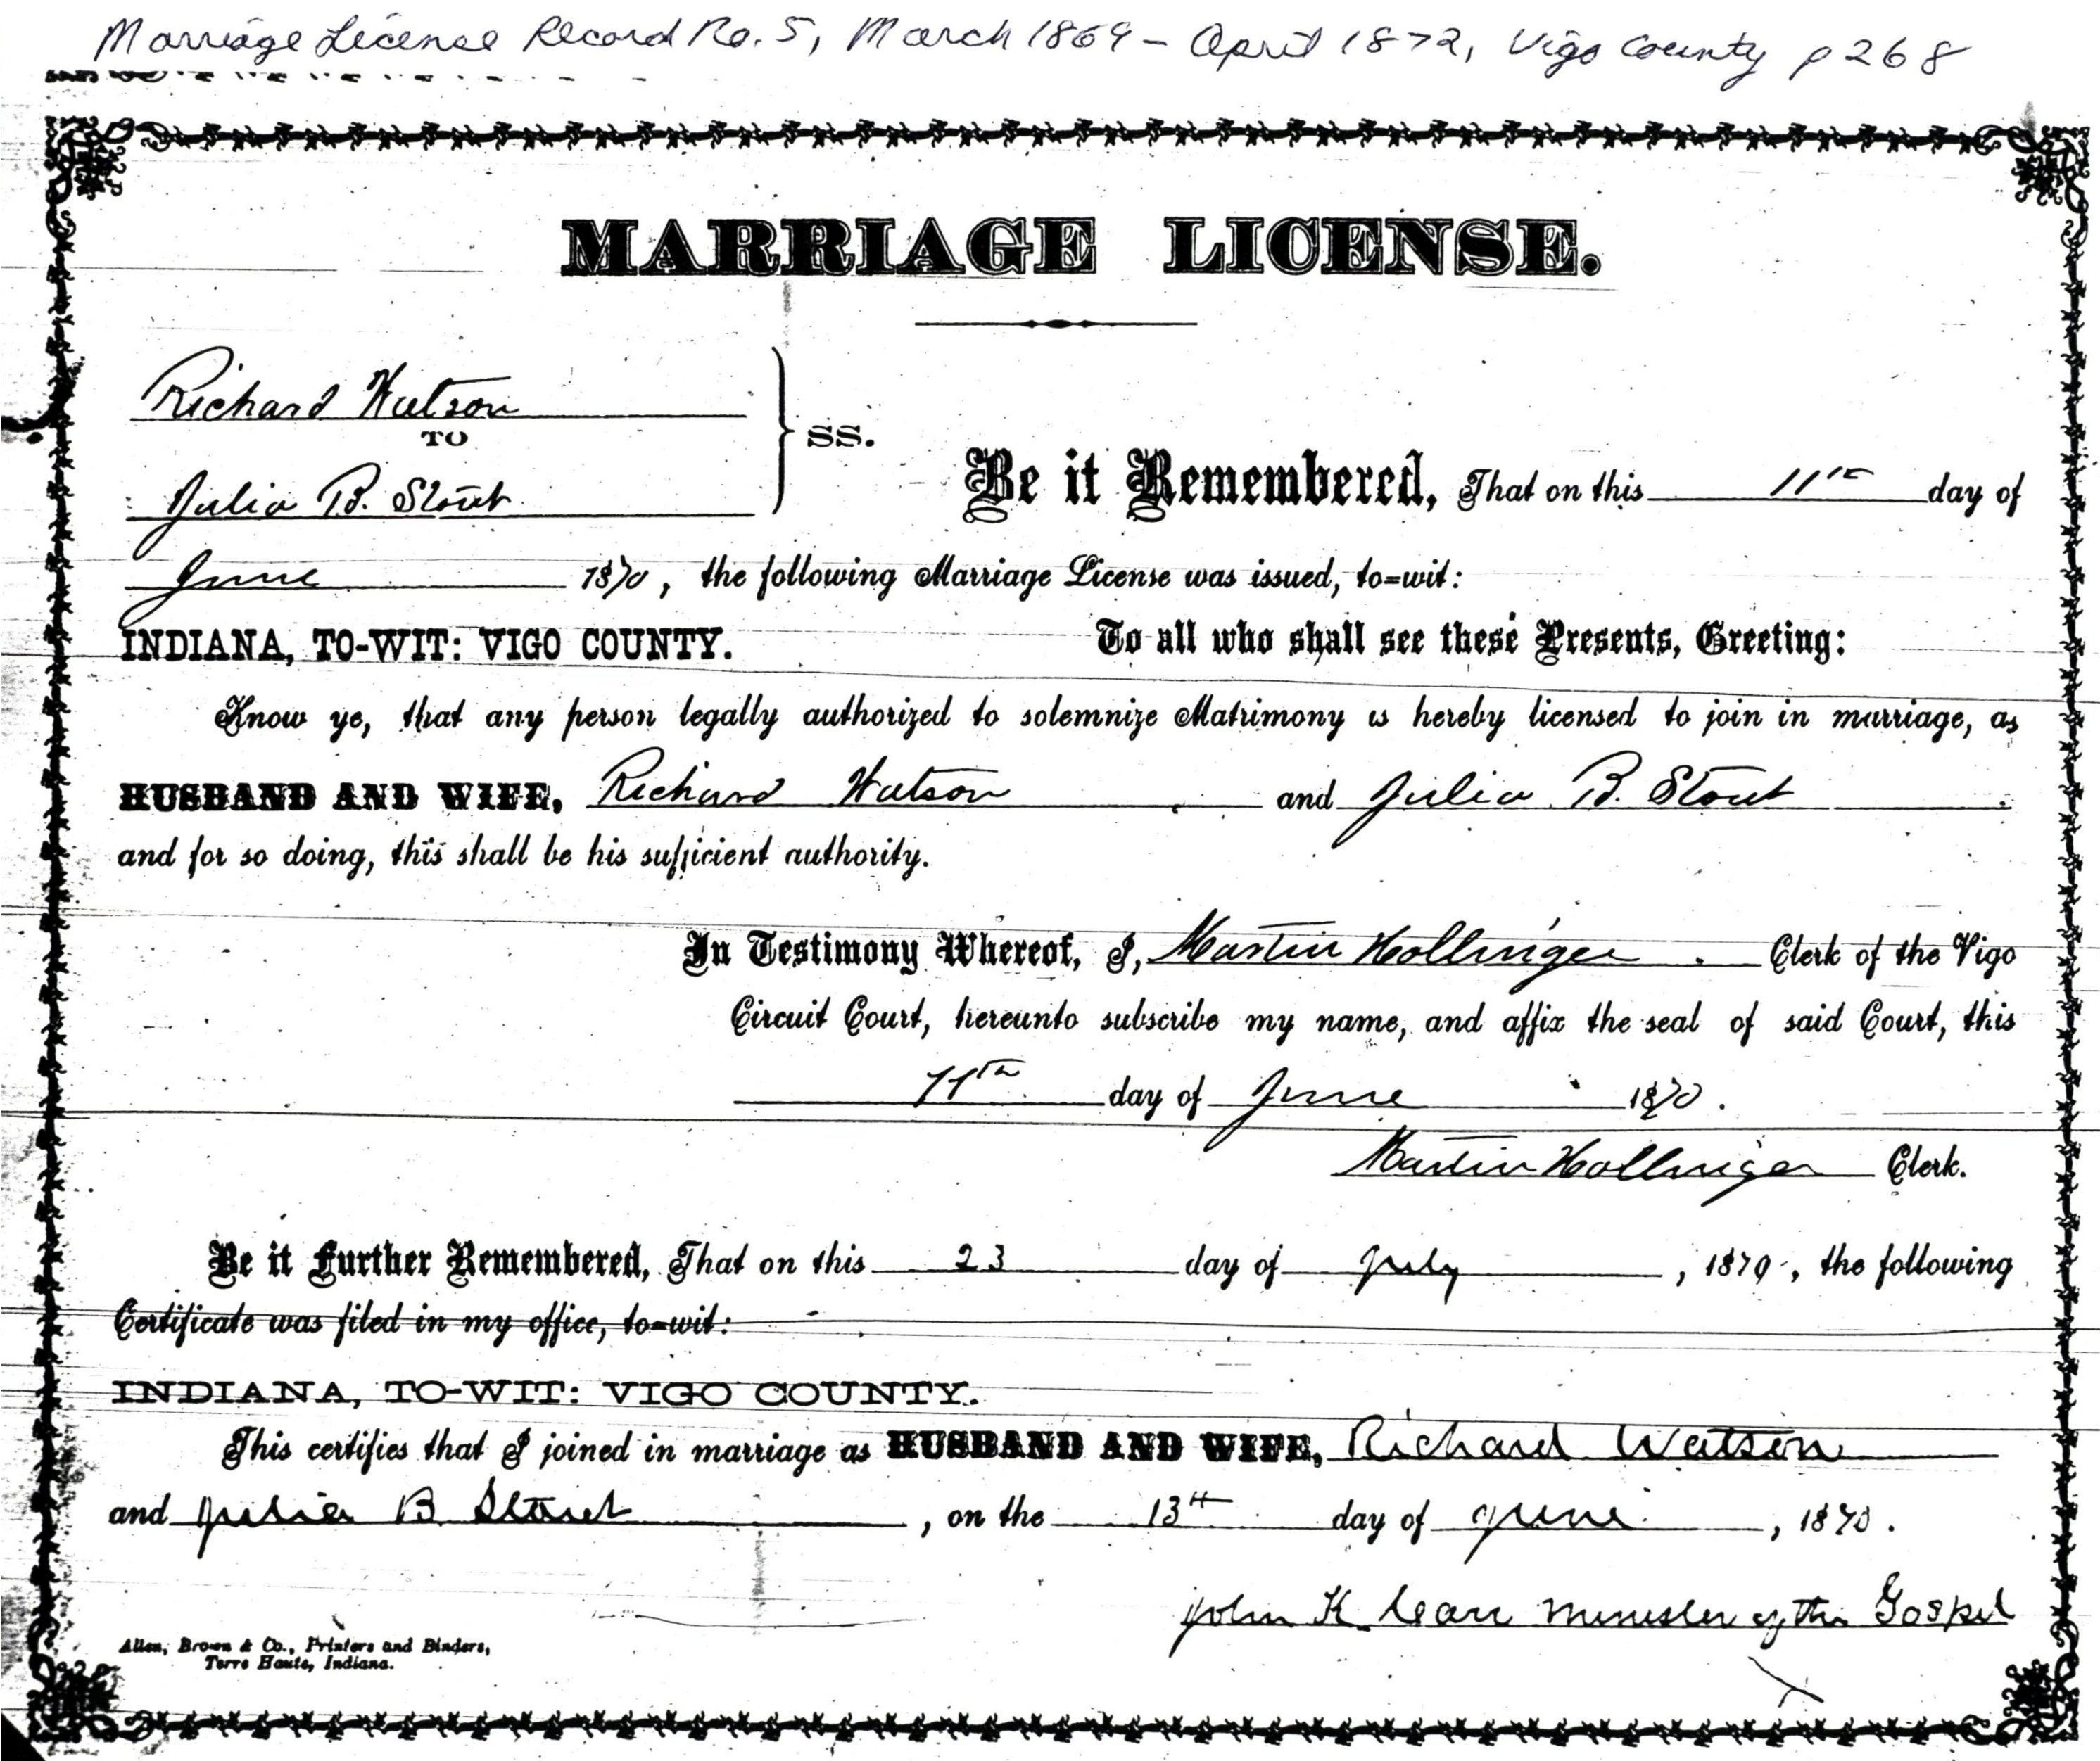 Marriage License Record No. 5, March 1869 - April 1872, Vigo County p 268
MARRIAGE LICENSE.
Richard Watson
TO
Julia B. Stout
SS.
Be it Remembered, That on this 11th day of
June 1870, the following Marriage License was issued, to=wit:
INDIANA, TO-WIT: VIGO COUNTY. To all who shall see these Presents, Greeting:
Know ye, that any person legally authorized to solemnize Matrimony is hereby licensed to join in marriage, as
HUSBAND AND WIFE, Richard Watson and Julia B. Stout
and for so doing, this shall be his sufficient authority.
In Testimony Whereof, I, Martin Hollinger Clerk of the Vigo
Circuit Court, hereunto subscribe my name, and affix the seal of said Court, this
11th day of June 1870.
Martin Hollinger Clerk.
Be it Further Remembered, That on this 23 day of July, 1870, the following
Certificate was filed in my office, to=wit:
INDIANA, TO-WIT: VIGO COUNTY.
This certifies that I joined in marriage as HUSBAND AND WIFE, Richard Watson
and Julia B Stout, on the 13th day of June, 1870.
John K. Minister of the Gospel
Allen, Brown & Co., Printers and Binders,
Terre Haute, Indiana.